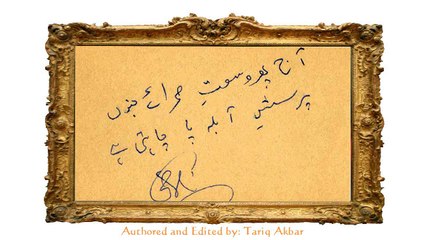 آج پھر وسعتِ صحرائے جنوں
پرسشِ آبلہ پا چاہتی ہے
Authored and Edited by: Tariq Akbar